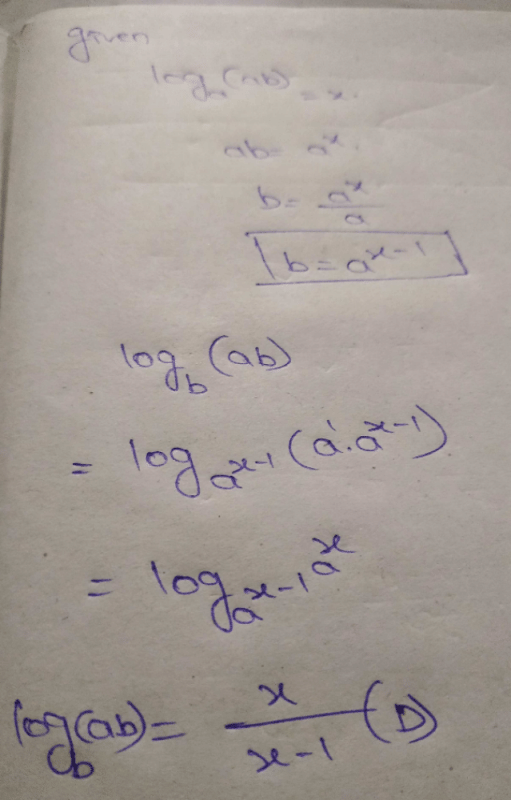 given
logₐ(ab) = x.
ab = aˣ.
b = aˣ/a
b = aˣ⁻¹
log_b (ab)
= log_{aˣ⁻¹} (a¹.aˣ⁻¹)
= log_{aˣ⁻¹} aˣ
log_b (ab) = x/(x-1) (D)